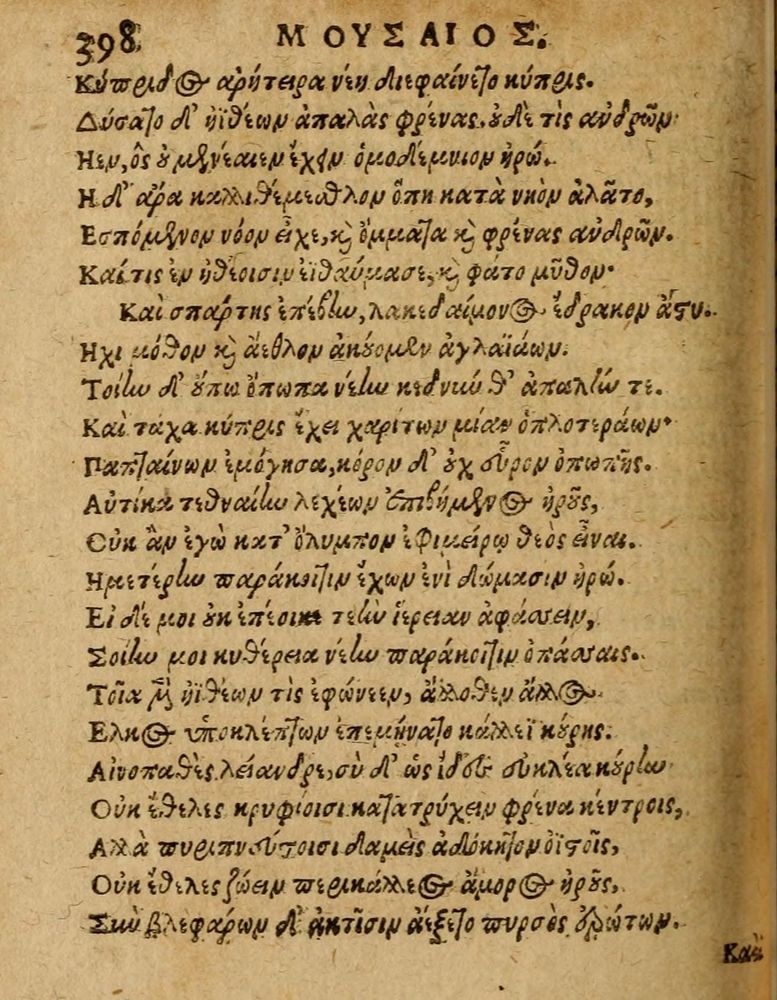 398 ΜΟΥΣΑΙΟΣ.
Κύπριδος ἀρήτειρα νέη διεφαίνετο κύπρις.
Δύσατο δ' ἠϊθέων ἁπαλὰς φρένας. οὐδέ τὶς ἀνδρῶν·
Ηεν, ὃς οὐ μενέαινεν ἔχειν ὁμοδέμνιον ἡρώ.
Η δ' ἄρα καλλιθέμεθλον ὅπη κατὰ νηὸν ἀλᾶτο,
Εσπόμενον νόον εἶχε, καὶ ὄμματα καὶ φρένας ἀνδρῶν.
Καί τις ἐν ἠϊθέοισιν ἐθαύμασε, καὶ φάτο μῦθον·
Καὶ σπάρτης ἐπέβην, λακεδαίμονος ἔδρακον ἄστυ.
Ηχι μόθον καὶ ἄεθλον ἀκούομεν ἀγλαϊάων.
Τοίην δ' οὔπω ὄπωπα νέην κεδνήν θ' ἁπαλήν τε.
Καὶ τάχα κύπρις ἔχει χαρίτων μίαν ὁπλοτεράων·
Παπταίνων ἐμόγησα, κόρον δ' οὐχ εὗρον ὀπωπῆς.
Αὐτίκα τεθναίην λεχέων ἐπιβήμενος ἡροῦς,
Οὐκ ἂν ἐγὼ κατ' ὄλυμπον ἐφιμείρω θεὸς εἶναι.
Ημετέρην παράκοιτιν ἔχων ἐνὶ δώμασιν ἡρώ.
Εἰ δέ μοι οὐκ ἐπέοικε τεὴν ἱέρειαν ἀφάσσειν,
Τοίην μοι κυθέρεια νέην παράκοιτιν ὀπάσσαις.
Τοῖα μὲν ἠϊθέων τὶς ἐφώνεεν, ἄλλοθεν ἄλλος
Ελκος ὑποκλέπτων ἐπεμήνατο κάλλεϊ κούρης.
Αἰνοπαθὲς λείανδρε, σὺ δ' ὡς ἴδες εὐκλέα κούρην
Οὐκ ἔθελες κρυφίοισι κατατρύχειν φρένα κέντροις,
Αλλὰ πυριπνεύστοισι δαμεὶς ἀδόκητον ὀϊστοῖς,
Οὐκ ἔθελες ζώειν περικαλλέος ἄμορος ἡροῦς,
Σὺν βλεφάρων δ' ἀκτῖσιν ἀέξετο πυρσὸς ἐρώτων.
Καὶ